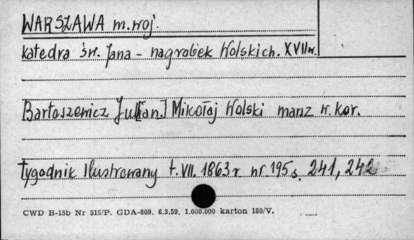 WARSZAWA m. woj.
katedra św. Jana - nagrobek Wolskich. XVII w.
Bartoszewicz Jul[ian] Mikołaj Wolski marsz. w. kor.
Tygodnik Ilustrowany t. VII. 1863 r. nr. 195 s. 241, 242
CWD B-15b Nr 515/P. GDA-809. 6.3.59. 1.000.000 karton 180/V.